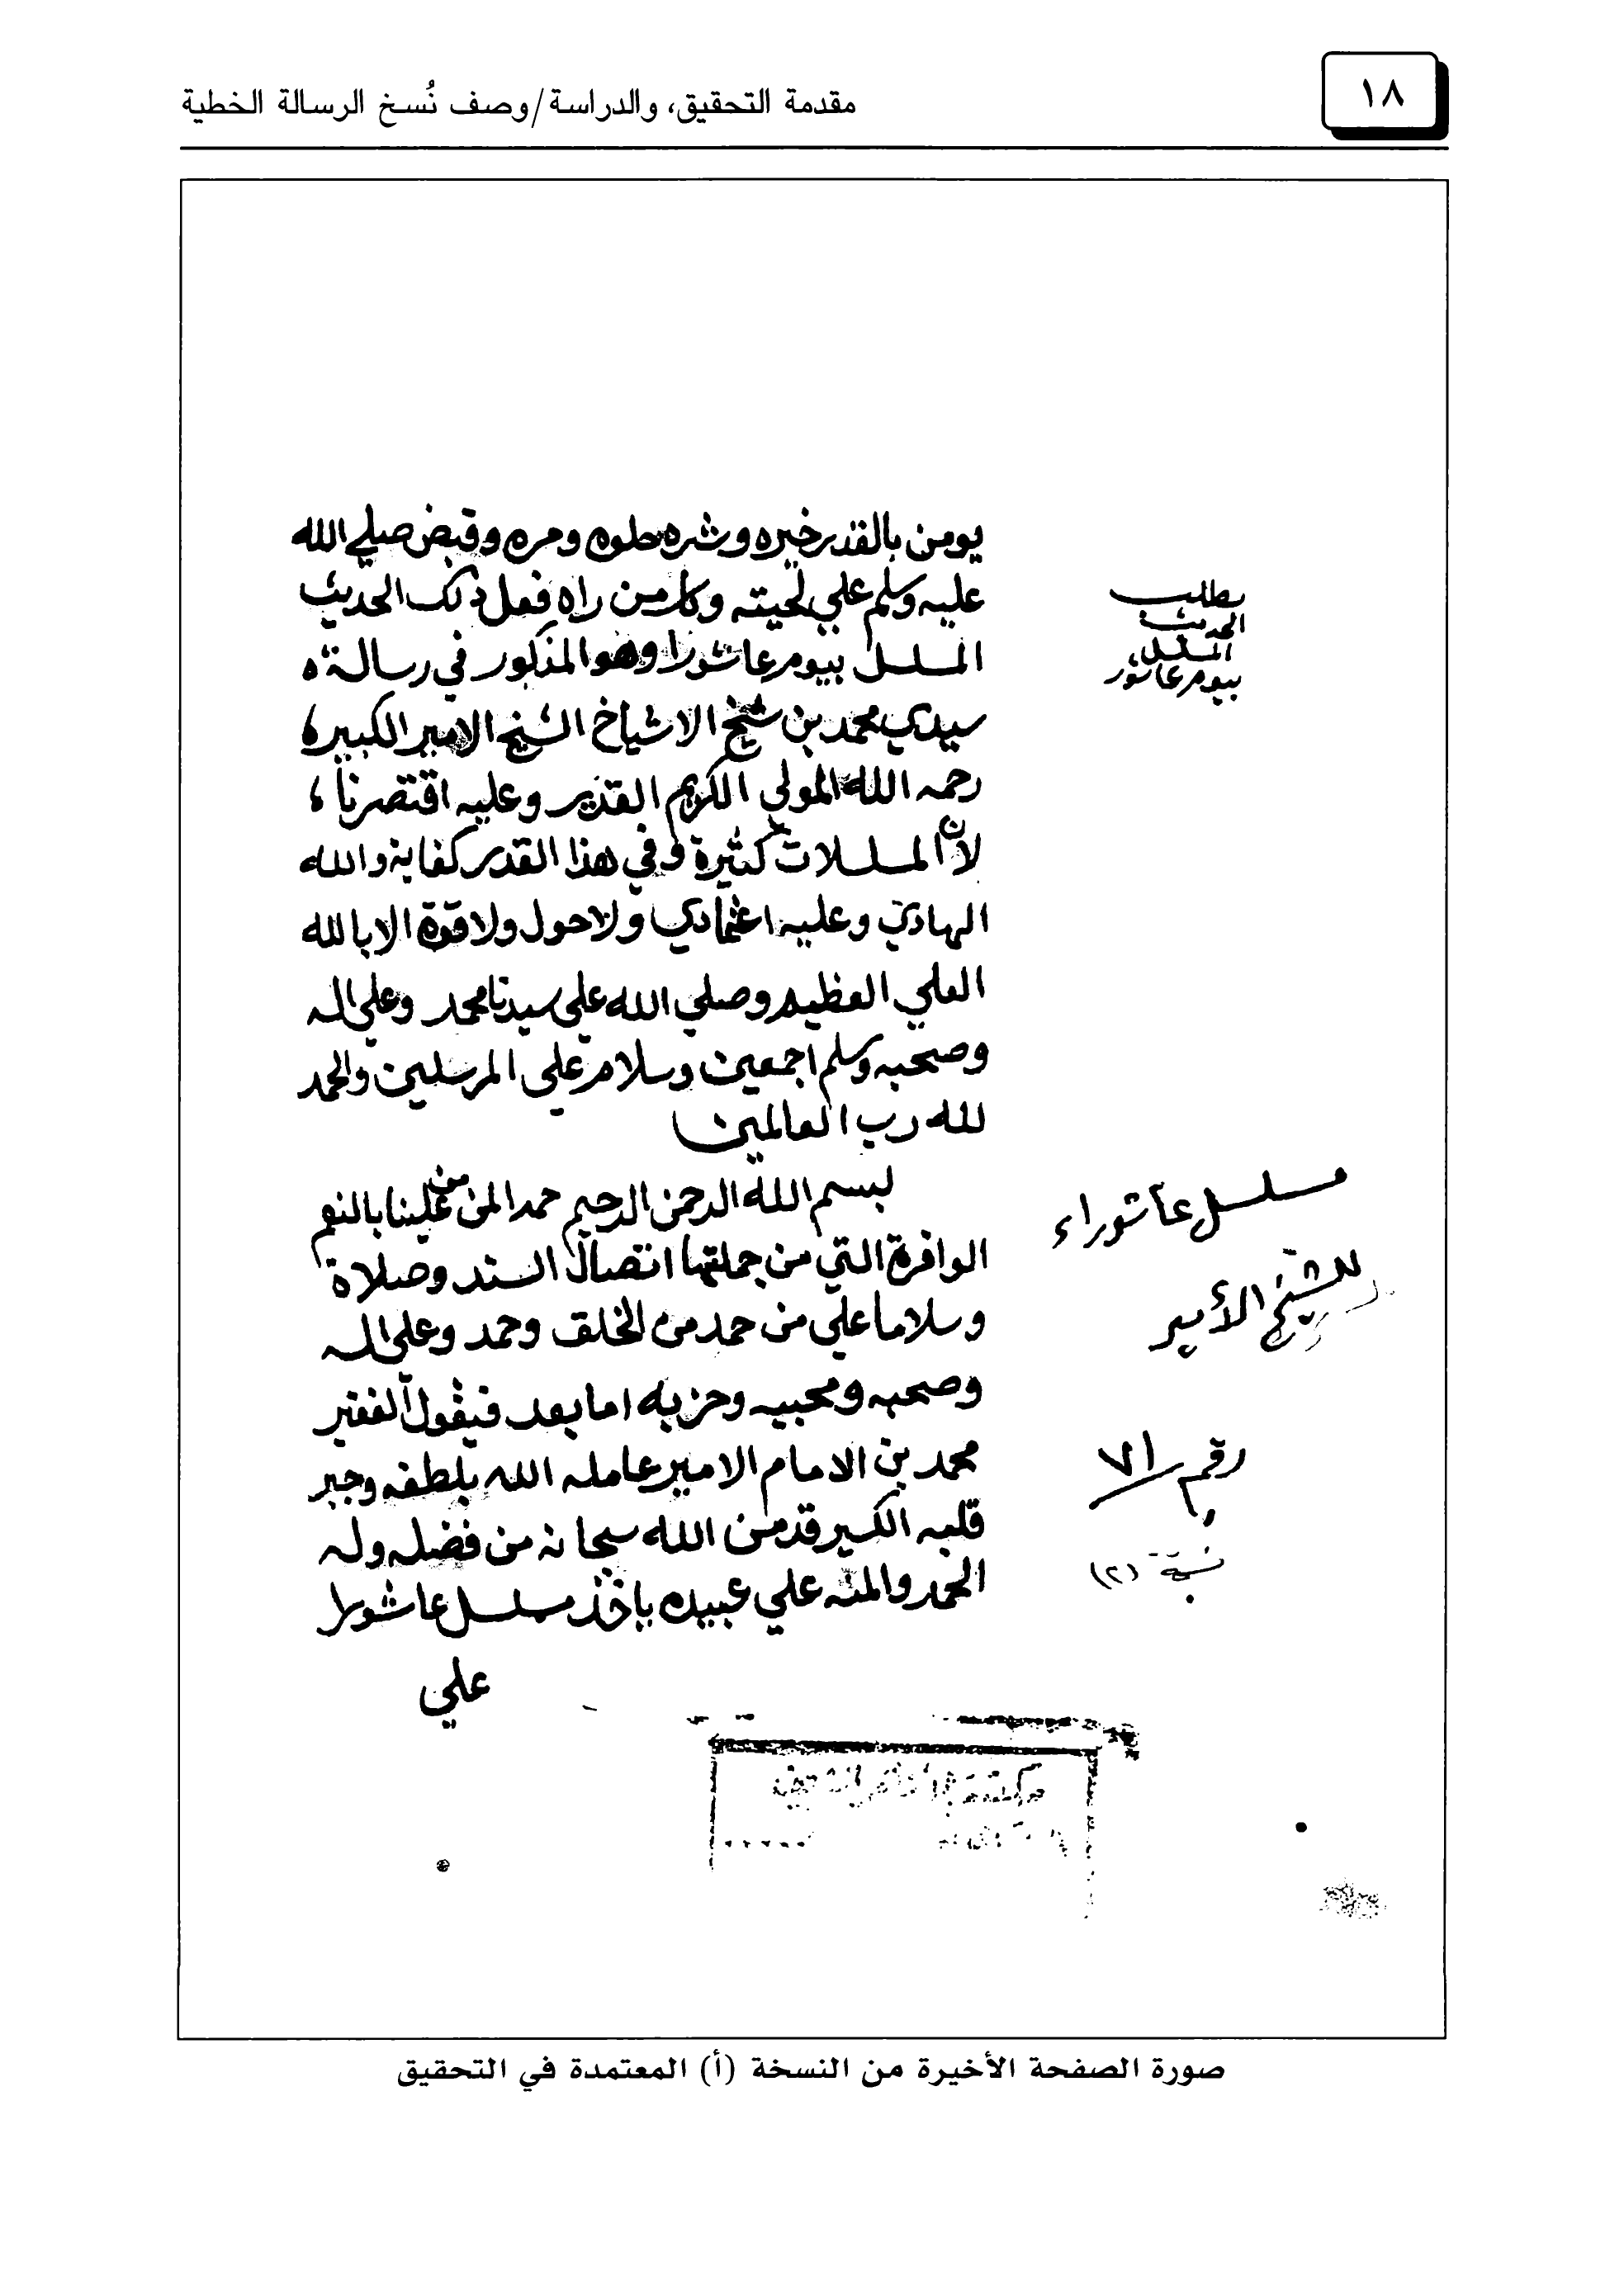 ١٨
مقدمة التحقيق، والدراسة/وصف نُسخ الرسالة الخطية
يومن بالقدر خيره وشره حلوه ومره وقبض صلي الله
عليه وسلم علي لحيته وكل من راه فعل ذلك الحديث
المسلسل بيوم عاشورا وهو المذكور في رسالة ه
سيدي محمد بن شيخ الاشياخ الشيخ الامير الكبير ه
رحمه الله المولي الكريم القدير وعليه اقتصرنا ،
لان المسلسلات كثيرة وفي هذا القدر كفاية والله
الهادي وعليه اعتمادي ولا حول ولا قوة الا بالله
العلي العظيم وصلي الله علي سيدنا محمد وعلي اله
وصحبه وسلم اجمعين وسلام علي المرسلين والحمد
لله رب العالمين
بطلب
الحديث
المسلسل
بيوم عاشور
بسم الله الرحمن الرحيم حمدا لمن من علينا بالنعم
الوافرة التي من جملتها اتصال السند وصلاة
وسلاما علي من حمد من الخلق وحمد وعلي اله
وصحبه ومحبيه وحزبه اما بعد فيقول الفقير
محمد بن الامام الامير عامله الله بلطفه وجبر
قلبه الكسير قد من الله سبحانه من فضله وله
الحمد والمنه علي عبيده باخذ مسلسل عاشورا
علي
مسلسل عاشوراء
للشيخ الأمير
رقم ٧١
نسخة (٢)
صورة الصفحة الأخيرة من النسخة (أ) المعتمدة في التحقيق